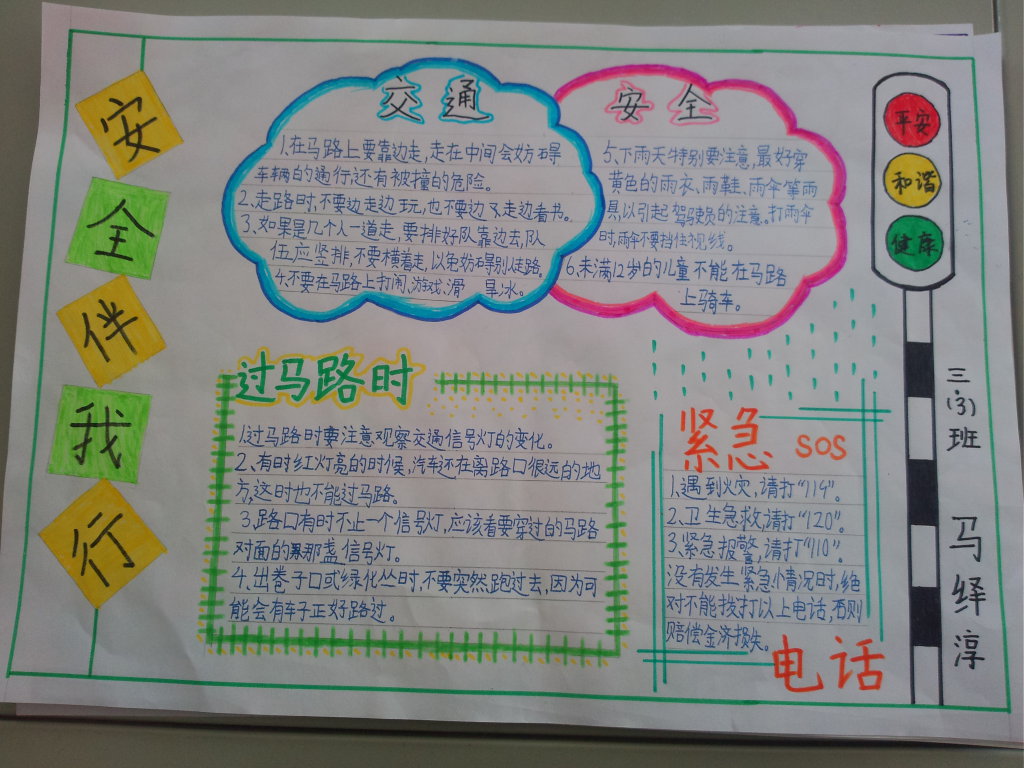 安
全
伴
我
行
交通
1.在马路上要靠边走,走在中间会妨碍
车辆的通行,还有被撞的危险。
2.走路时,不要边走边玩,也不要边走边看书。
3.如果是几个人一道走,要排好队靠边去,队
伍应竖排,不要横着走,以免妨碍别人走路。
4.不要在马路上打闹、游戏、滑旱冰。
安全
5.下雨天特别要注意,最好穿
黄色的雨衣、雨鞋、雨伞等雨
具,以引起驾驶员的注意。打雨伞
时,雨伞不要挡住视线。
6.未满12岁的儿童不能在马路
上骑车。
平安
和谐
健康
过马路时
1.过马路时要注意观察交通信号灯的变化。
2、有时红灯亮的时候,汽车还在离路口很远的地
方,这时也不能过马路。
3.路口有时不止一个信号灯,应该看要穿过的马路
对面的那盏信号灯。
4.出巷子口或绿化丛时,不要突然跑过去,因为可
能会有车子正好路过。
紧急 SOS
1、遇到火灾,请打“119”。
2、卫生急救,请打“120”。
3、紧急报警,请打“110”。
没有发生紧急情况时,绝
对不能拨打以上电话,否则
赔偿金济损失。
电话
三.(3)班
马绎淳